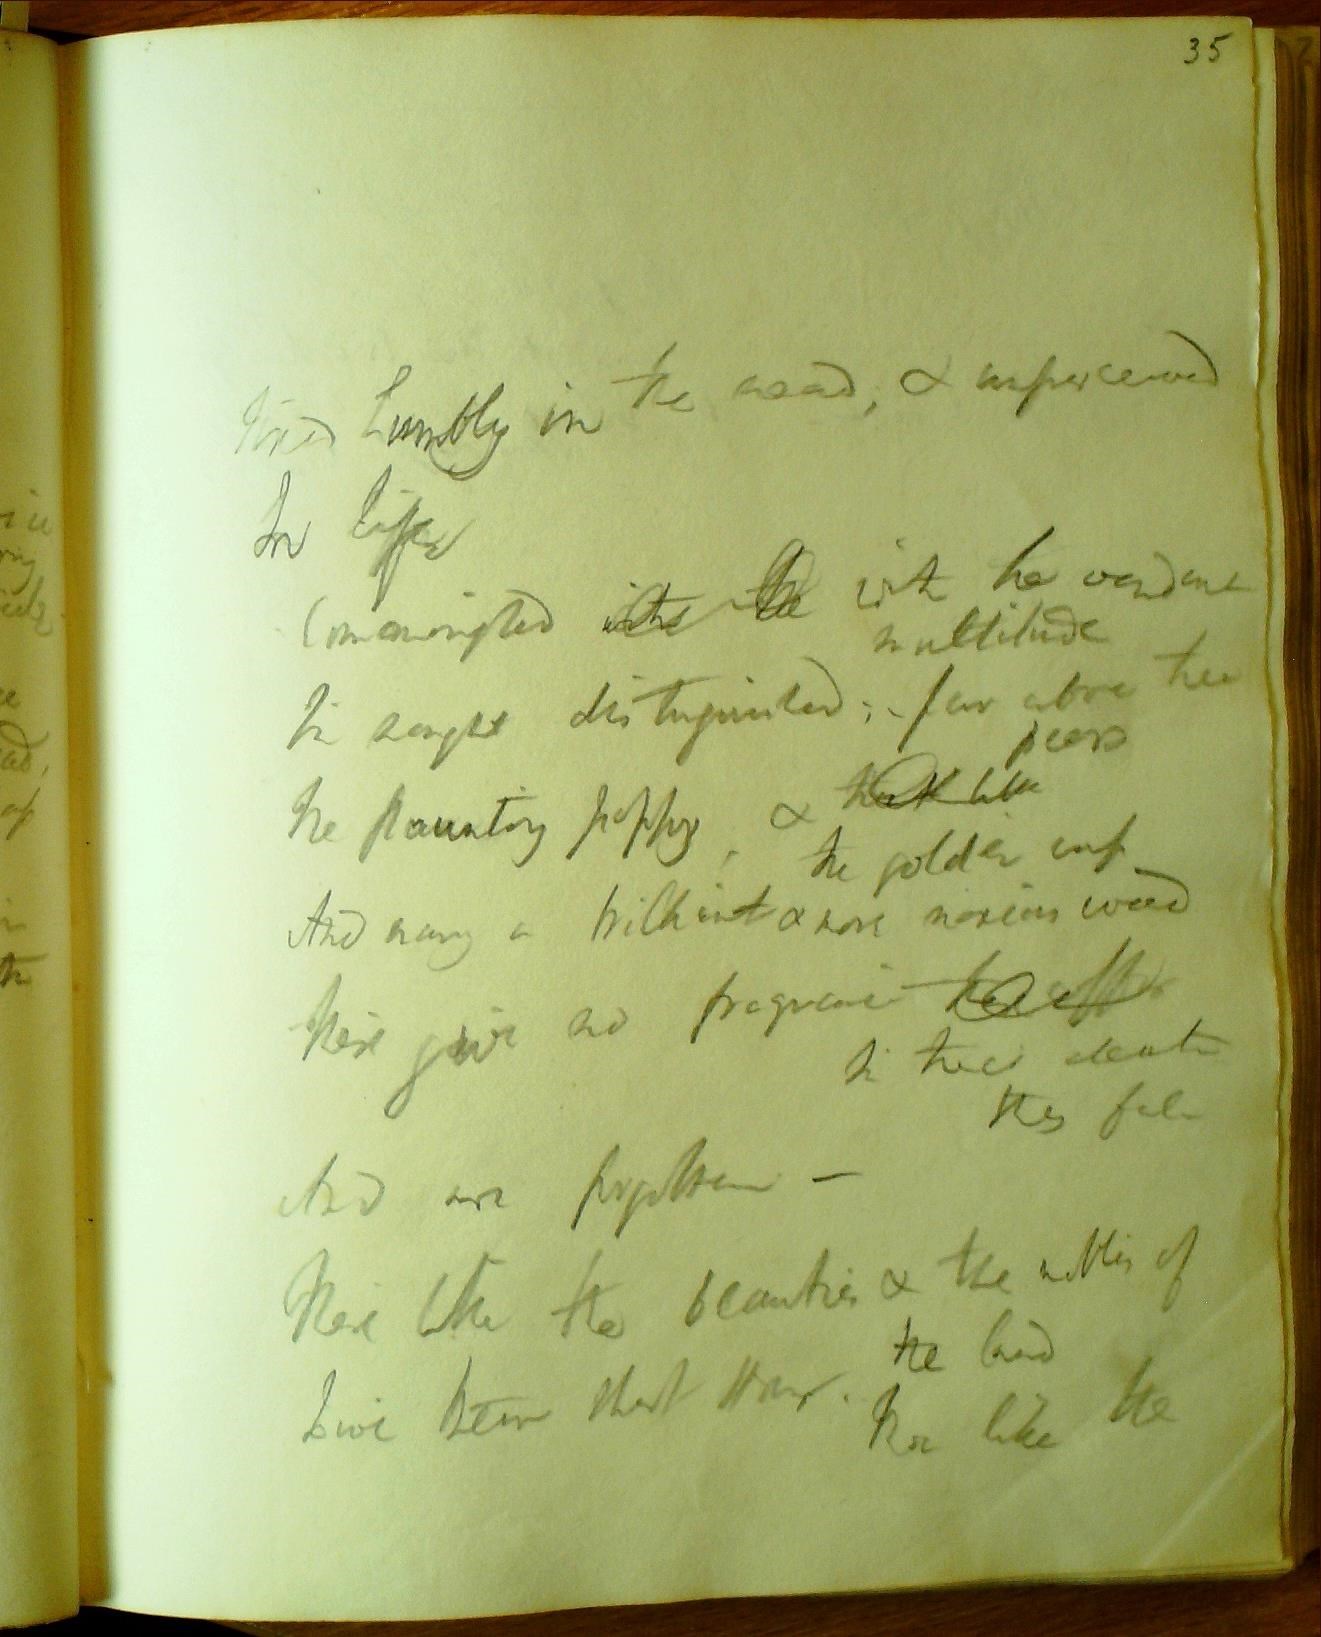 35
humbly in the mead; & unperceived
In life
Commingled with the with the verdant
multitude
In nought distinguished; - far above their
peers
The flaunting poppy, & that like
the golden cup
And many a brilliant & more noxious weed
These give no fragrance
In their death
they fale
And are forgotten —
These like the beauties & the nobles of
the land
Live their short Hour.
like the